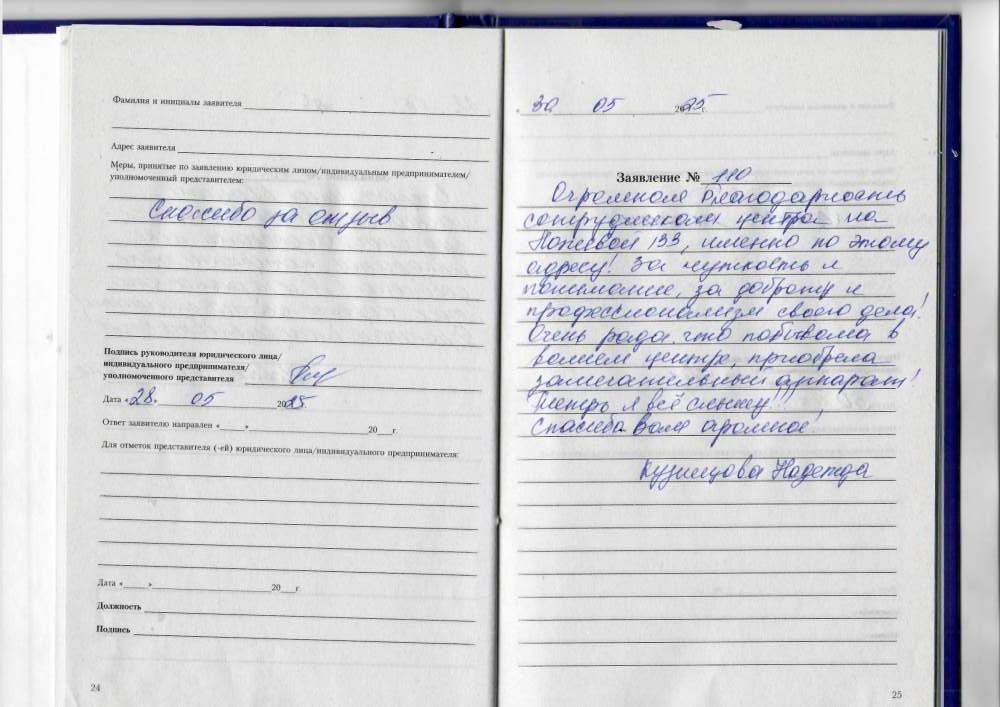 Фамилия и инициалы заявителя
Адрес заявителя
Меры, принятые по заявлению юридическим лицом/индивидуальным предпринимателем/
уполномоченный представителем:
Спасибо за отзыв
Подпись руководителя юридического лица/
индивидуального предпринимателя/
уполномоченного представителя
Дата «28» 05 2025
Ответ заявителю направлен «    » 20    г.
Для отметок представителя (-ей) юридического лица/индивидуального предпринимателя:
Дата «    » 20    г.
Должность
Подпись
24
30 05 2025 г.
Заявление № 110
Огромная благодарность
сотрудникам центра на
133, именно по этому
адресу! За чуткость и
понимание, за доброту и
профессионализм своего дела!
Очень рада что побывала в
вашем центре, приобрела
замечательный аппарат!
Теперь я всё слышу!!!
Спасибо Вам огромное!
Кузнецова Надежда
25